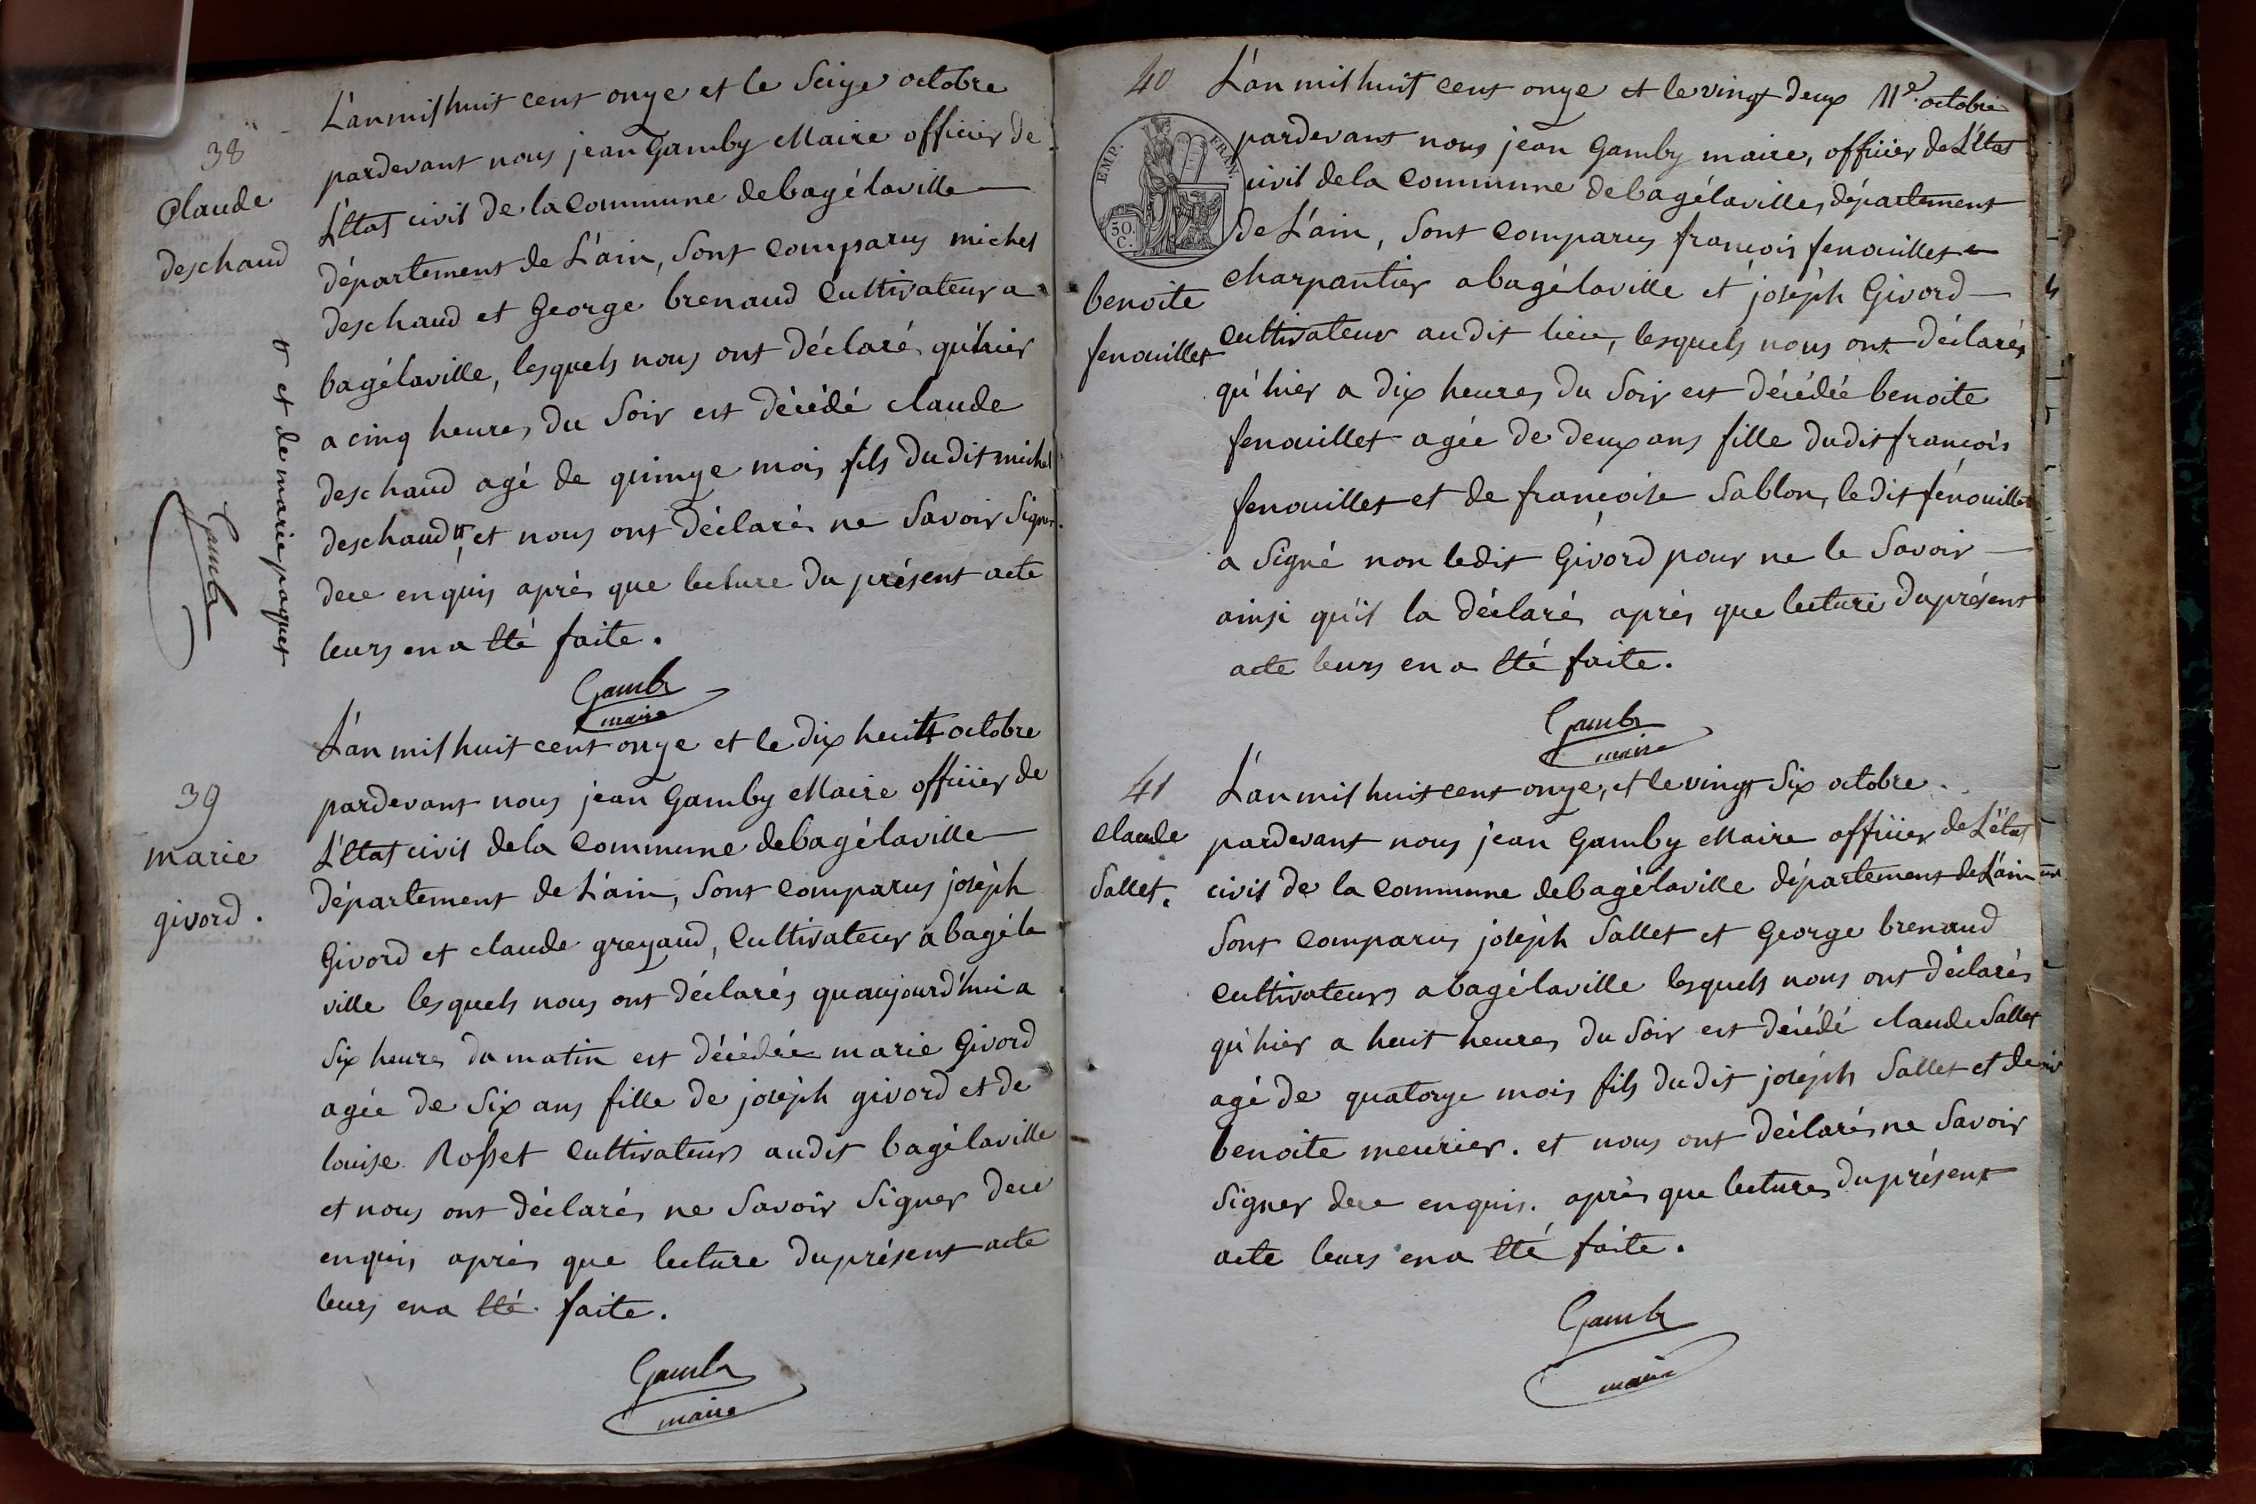 38
Claude
deschaud
L'an mil huit cent onze et le Seize octobre
pardevant nous jean Gamby Maire officier de
L'Etat civil de la Commune de bagélaville
département de L'ain, Sont comparus michel
deschaud et George brenaud Cultivateur a
bagélaville, lesquels nous ont déclaré qu'hier
a cinq heures du Soir est décédé claude
deschaud agé de quinze mois fils dudit michel
deschaud # et nous ont déclarés ne Savoir Signer
dece enquis après que lecture du présent acte
leurs en a Eté faite.
# et de marie paquet
Gamby
Gamby
maire
39
marie
givord.
L'an mil huit cent onze et le dix huit octobre
pardevant nous jean Gamby Maire officier de
L'Etat civil de la Commune de bagélaville
département de L'ain, Sont comparus joséph
Givord et claude greyaud, Cultivateur a bagéla
ville lesquels nous ont déclarés quaujourd'hui a
Six heures du matin est décédée marie Givord
agée de Six ans fille de joséph givord et de
louise Rosset Cultivateurs audit bagélaville
et nous ont déclarés ne Savoir Signer dece
enquis après que lecture du présent acte
leurs en a Eté faite.
Gamby
maire
40
EMP. FRAN.
50.
C.
benoite
fenouillet
L'an mil huit cent onze et le vingt deux octobre
pardevant nous jean Gamby maire, officier de L'Etat
civil de la Commune de bagélaville, département
de L'ain, Sont Comparus francois fenouillet
charpantier a bagélaville et joséph Givord
cultivateur audit lieu, lesquels nous ont déclarés
qu'hier a dix heures du Soir est décédée benoite
fenouillet agée de deux ans fille dudit francois
fenouillet et de francoise Sablon, le dit fenouillet
a Signé non ledit Givord pour ne le Savoir
ainsi qu'il la déclaré après que lecture du présent
acte leurs en a Eté faite.
Gamby
maire
41
claude
Sallet.
L'an mil huit cent onze, et le vingt Six octobre
pardevant nous jean Gamby Maire officier de L'état
civil de la Commune de bagélaville département de L'ain
Sont comparus joséph Sallet et George brenaud
Cultivateurs a bagélaville lesquels nous ont déclarés
qu'hier a huit heures du Soir est décédé claude Sallet
agé de quatorze mois fils dudit joséph Sallet et de
benoite meurier. et nous ont déclarés ne Savoir
Signer dece enquis. après que lecture du présent
acte leurs en a Eté faite.
Gamby
maire